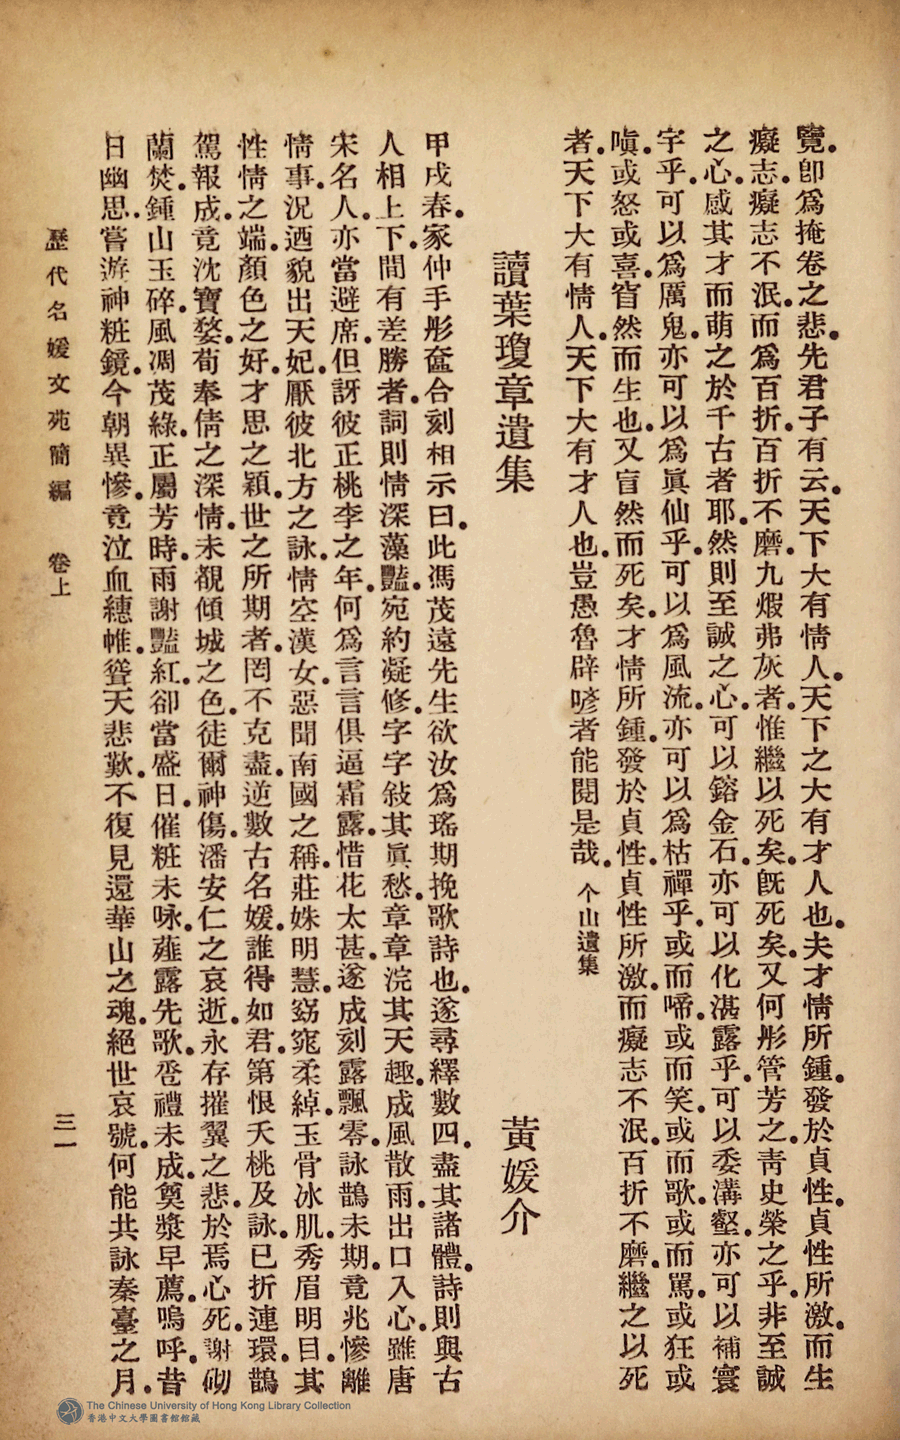 覽。卽爲掩卷之悲。先君子有云。天下大有情人。天下之大有才人也。夫才情所鍾。發於貞性。貞性所激。而生
癡志。癡志不泯。而爲百折。百折不磨。九煆弗灰者。惟繼以死矣。旣死矣。又何彤管芳之。靑史榮之乎。非至誠
之心。感其才而萌之於千古者耶。然則至誠之心。可以鎔金石。亦可以化湛露乎。可以委溝壑。亦可以補寰
宇乎。可以爲厲鬼。亦可以爲眞仙乎。可以爲風流。亦可以爲枯禪乎。或而啼。或而笑。或而歌。或而罵。或狂或
嗔。或怒或喜。窅然而生也。又窅然而死矣。才情所鍾。發於貞性。貞性所激。而癡志不泯。百折不磨。繼之以死
者。天下大有情人。天下大有才人也。豈愚魯辟喭者能閱是哉。个山遺集
讀葉瓊章遺集 黃媛介
甲戌春。家仲手彤奩合刻相示曰。此馮茂遠先生欲汝爲瑤期挽歌詩也。遂尋繹數四。盡其諸體。詩則與古
人相上下。間有差勝者。詞則情深藻豔。宛約凝修。字字敍其眞愁。章章浣其天趣。成風散雨。出口入心。雖唐
宋名人。亦當避席。但訝彼正桃李之年。何爲言言俱逼霜露。惜花太甚。遂成刻露飄零。詠鵲未期。竟兆慘離
情事。況迺貌出天妃。厭彼北方之詠。情空漢女。惡聞南國之稱。莊姝明慧。窈窕柔綽。玉骨冰肌。秀眉明目。其
性情之端。顏色之好。才思之穎。世之所期者。罔不克盡。逆數古名媛。誰得如君。第恨夭桃及詠。已折連環。鵲
駕報成。竟沈寶婺。荀奉倩之深情。未覩傾城之色。徒爾神傷。潘安仁之哀逝。永存摧翼之悲。於焉心死。謝砌
蘭焚。鍾山玉碎。風凋茂綠。正屬芳時。雨謝豔紅。卻當盛日。催粧未咏。薤露先歌。巹禮未成。奠漿早薦。嗚呼。昔
日幽思。嘗遊神粧鏡。今朝異慘。竟泣血繐帷。聳天悲歎。不復見還華山之魂。絕世哀號。何能共詠秦臺之月。
歷代名媛文苑簡編 卷上 三一
The Chinese University of Hong Kong Library Collection
香港中文大學圖書館館藏